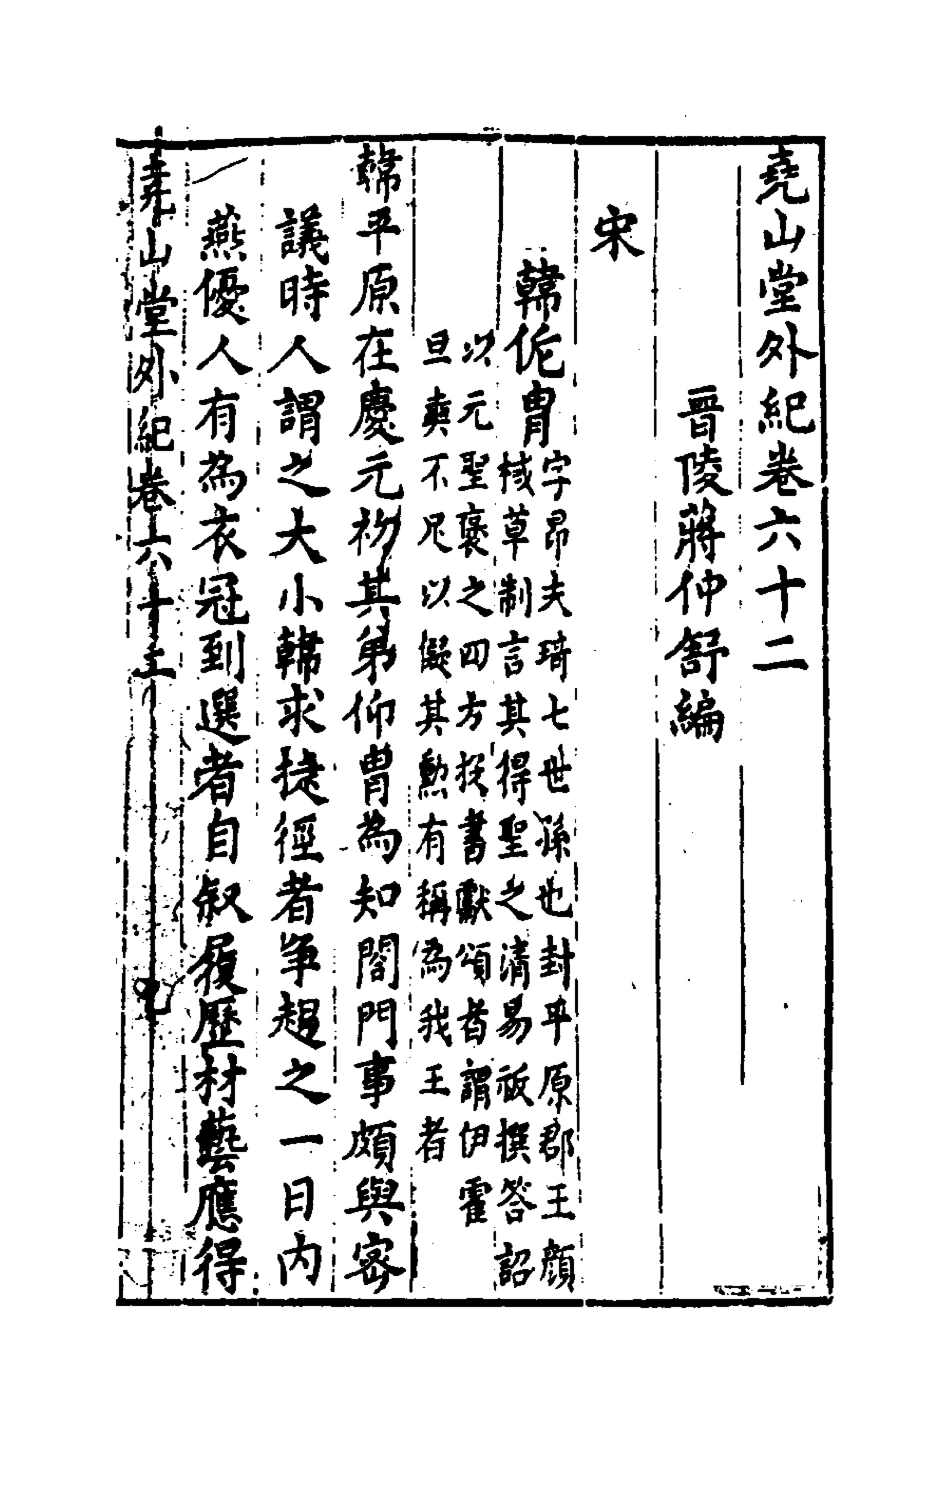 堯山堂外紀卷六十二
晋陵蔣仲舒編
宋
韓侂胄
字昂夫琦七世孫也封平原郡王顔
棫草制言其得聖之清易祓撰答詔
以元聖褒之四方投書獻頌者謂伊霍
旦奭不足以儗其勲有稱為我王者
韓平原在慶元初其弟仰胄為知閤門事頗與密
議時人謂之大小韓求捷徑者争趨之一日内
燕優人有為衣冠到選者自叙履歷材藝應得
堯山堂外紀卷六十